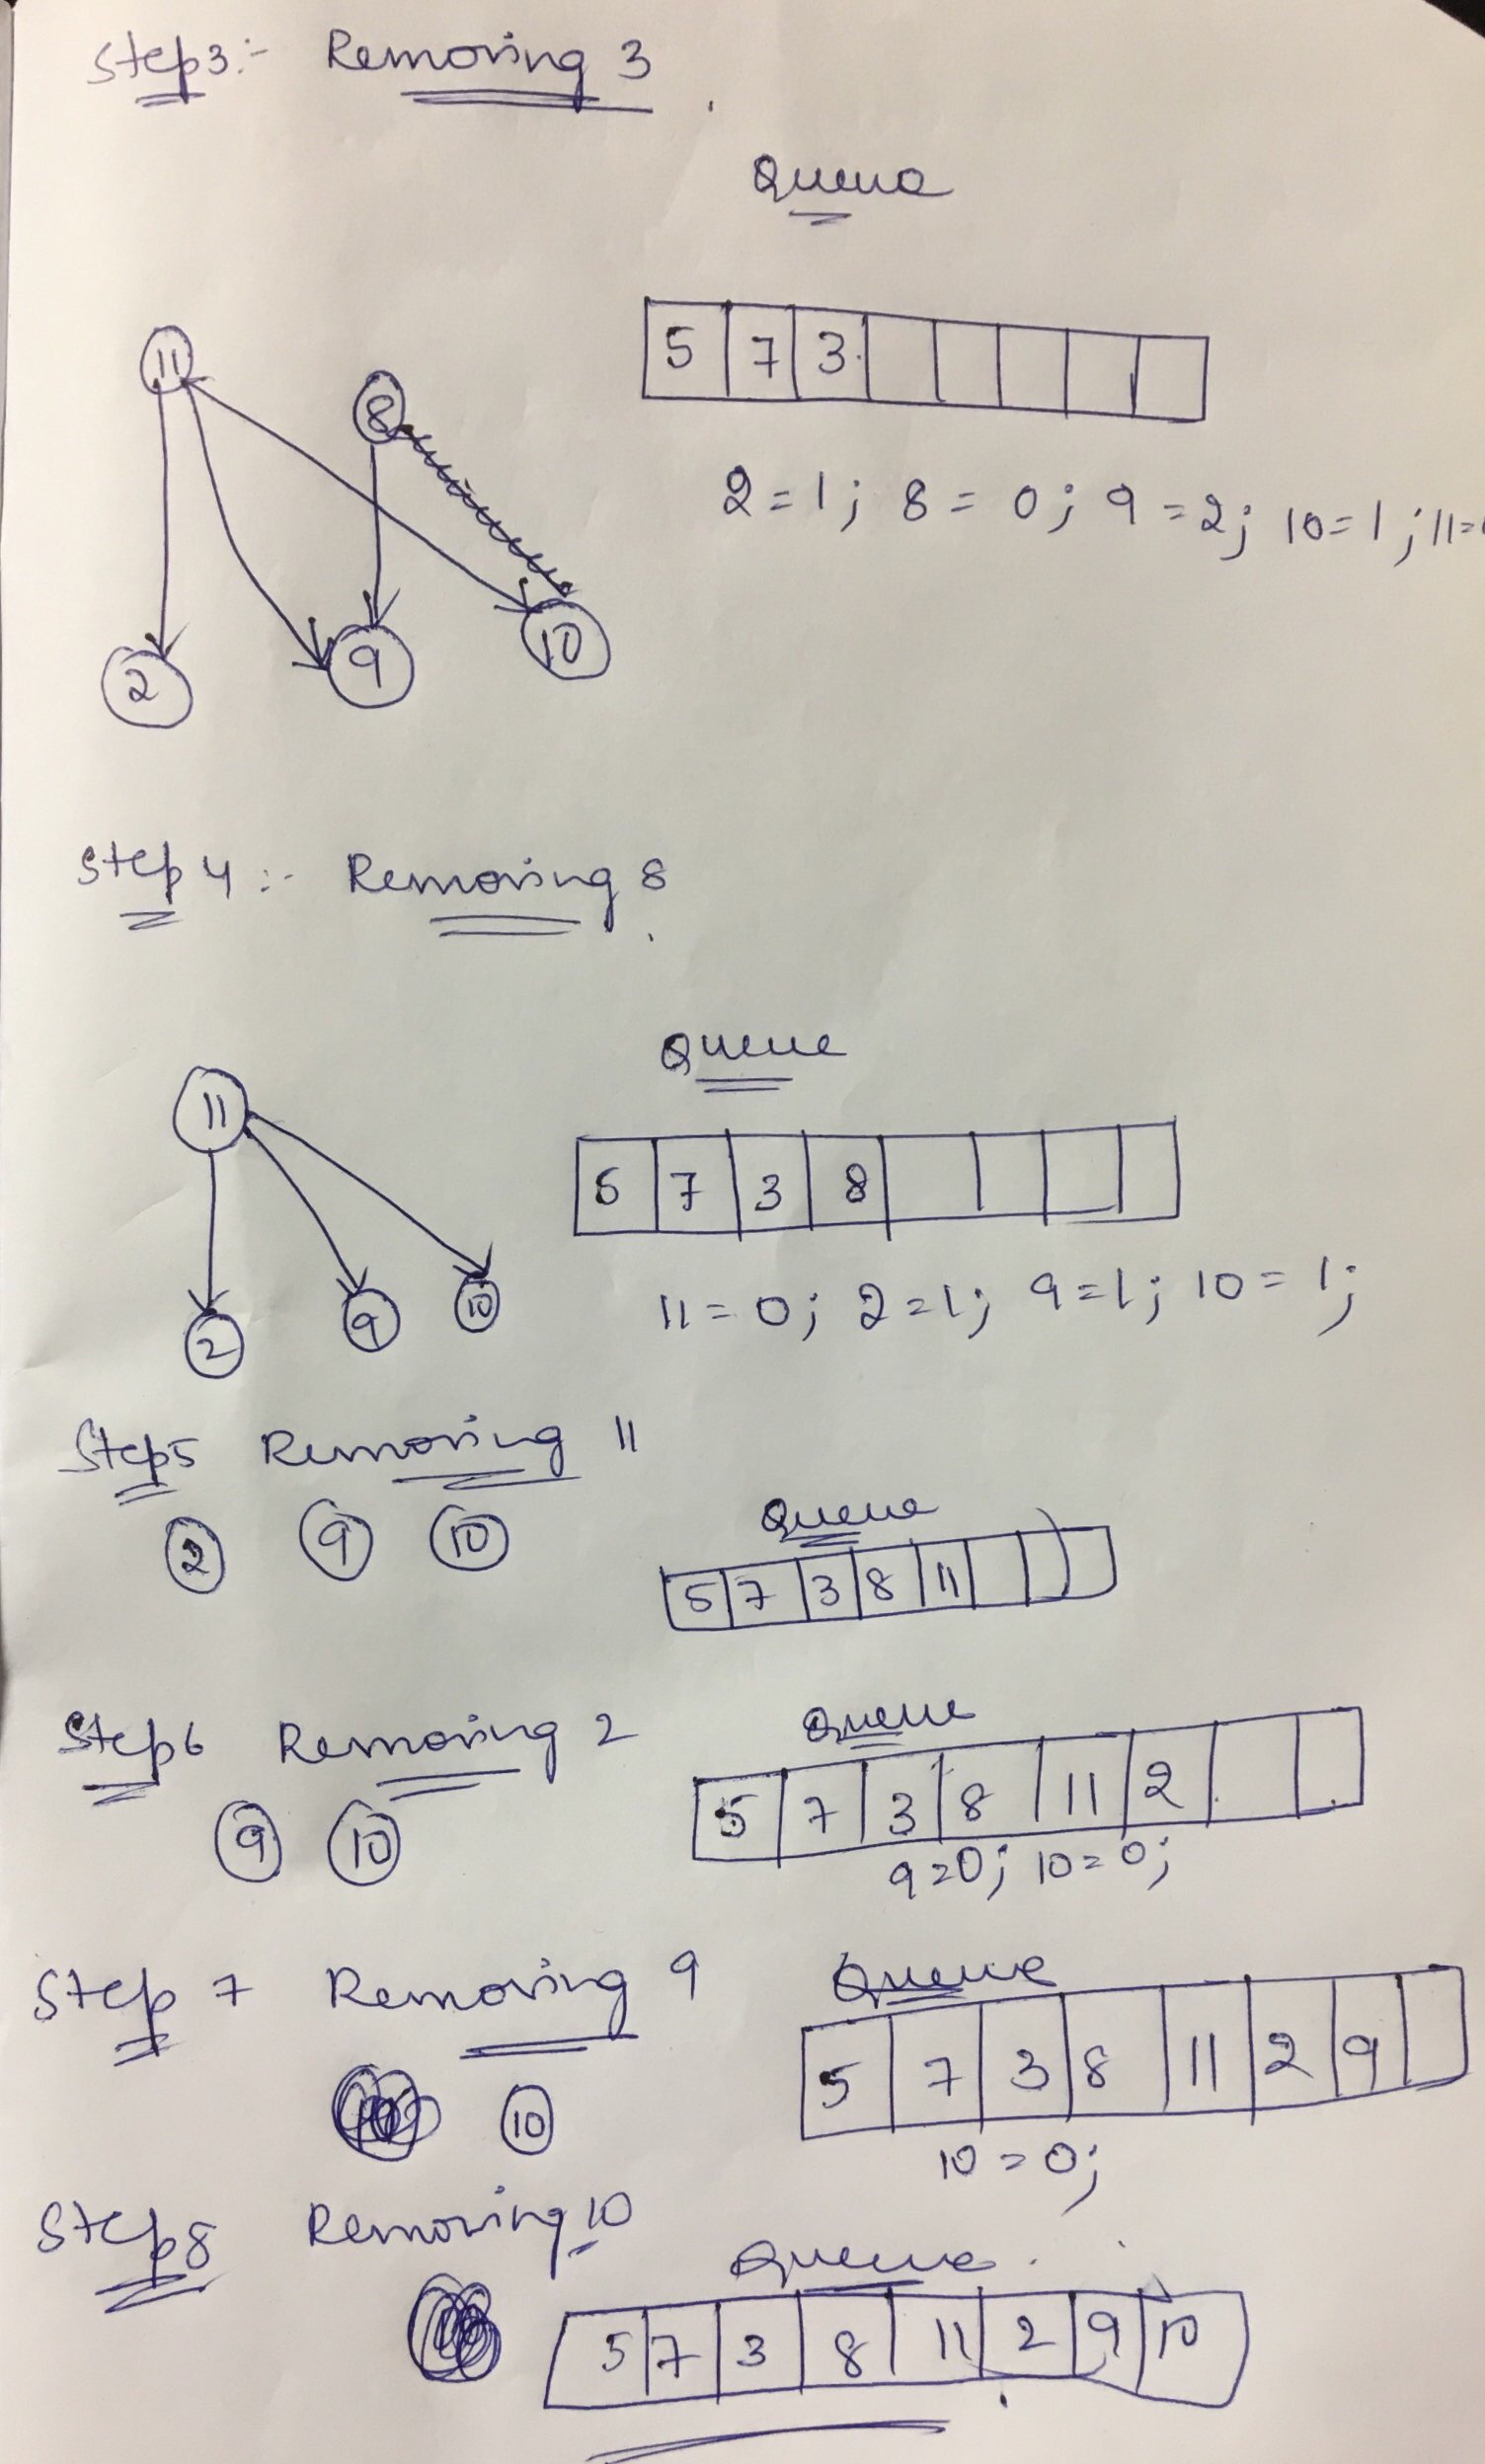 Step3:- Removing 3
Queue
5 7 3
11 8
2 9 10
2=1; 8=0; 9=2; 10=1; 11=
Step 4:- Removing 8
Queue
11
5 7 3 8
2 9 10
11=0; 2=1; 9=1; 10=1;
Step5 Removing 11
Queue
2 9 10
5 7 3 8 11
Step6 Removing 2
Queue
9 10
5 7 3 8 11 2
9=0; 10=0;
Step 7 Removing 9
Queue
10
5 7 3 8 11 2 9
10=0;
Step8 Removing 10
Queue
5 7 3 8 11 2 9 10